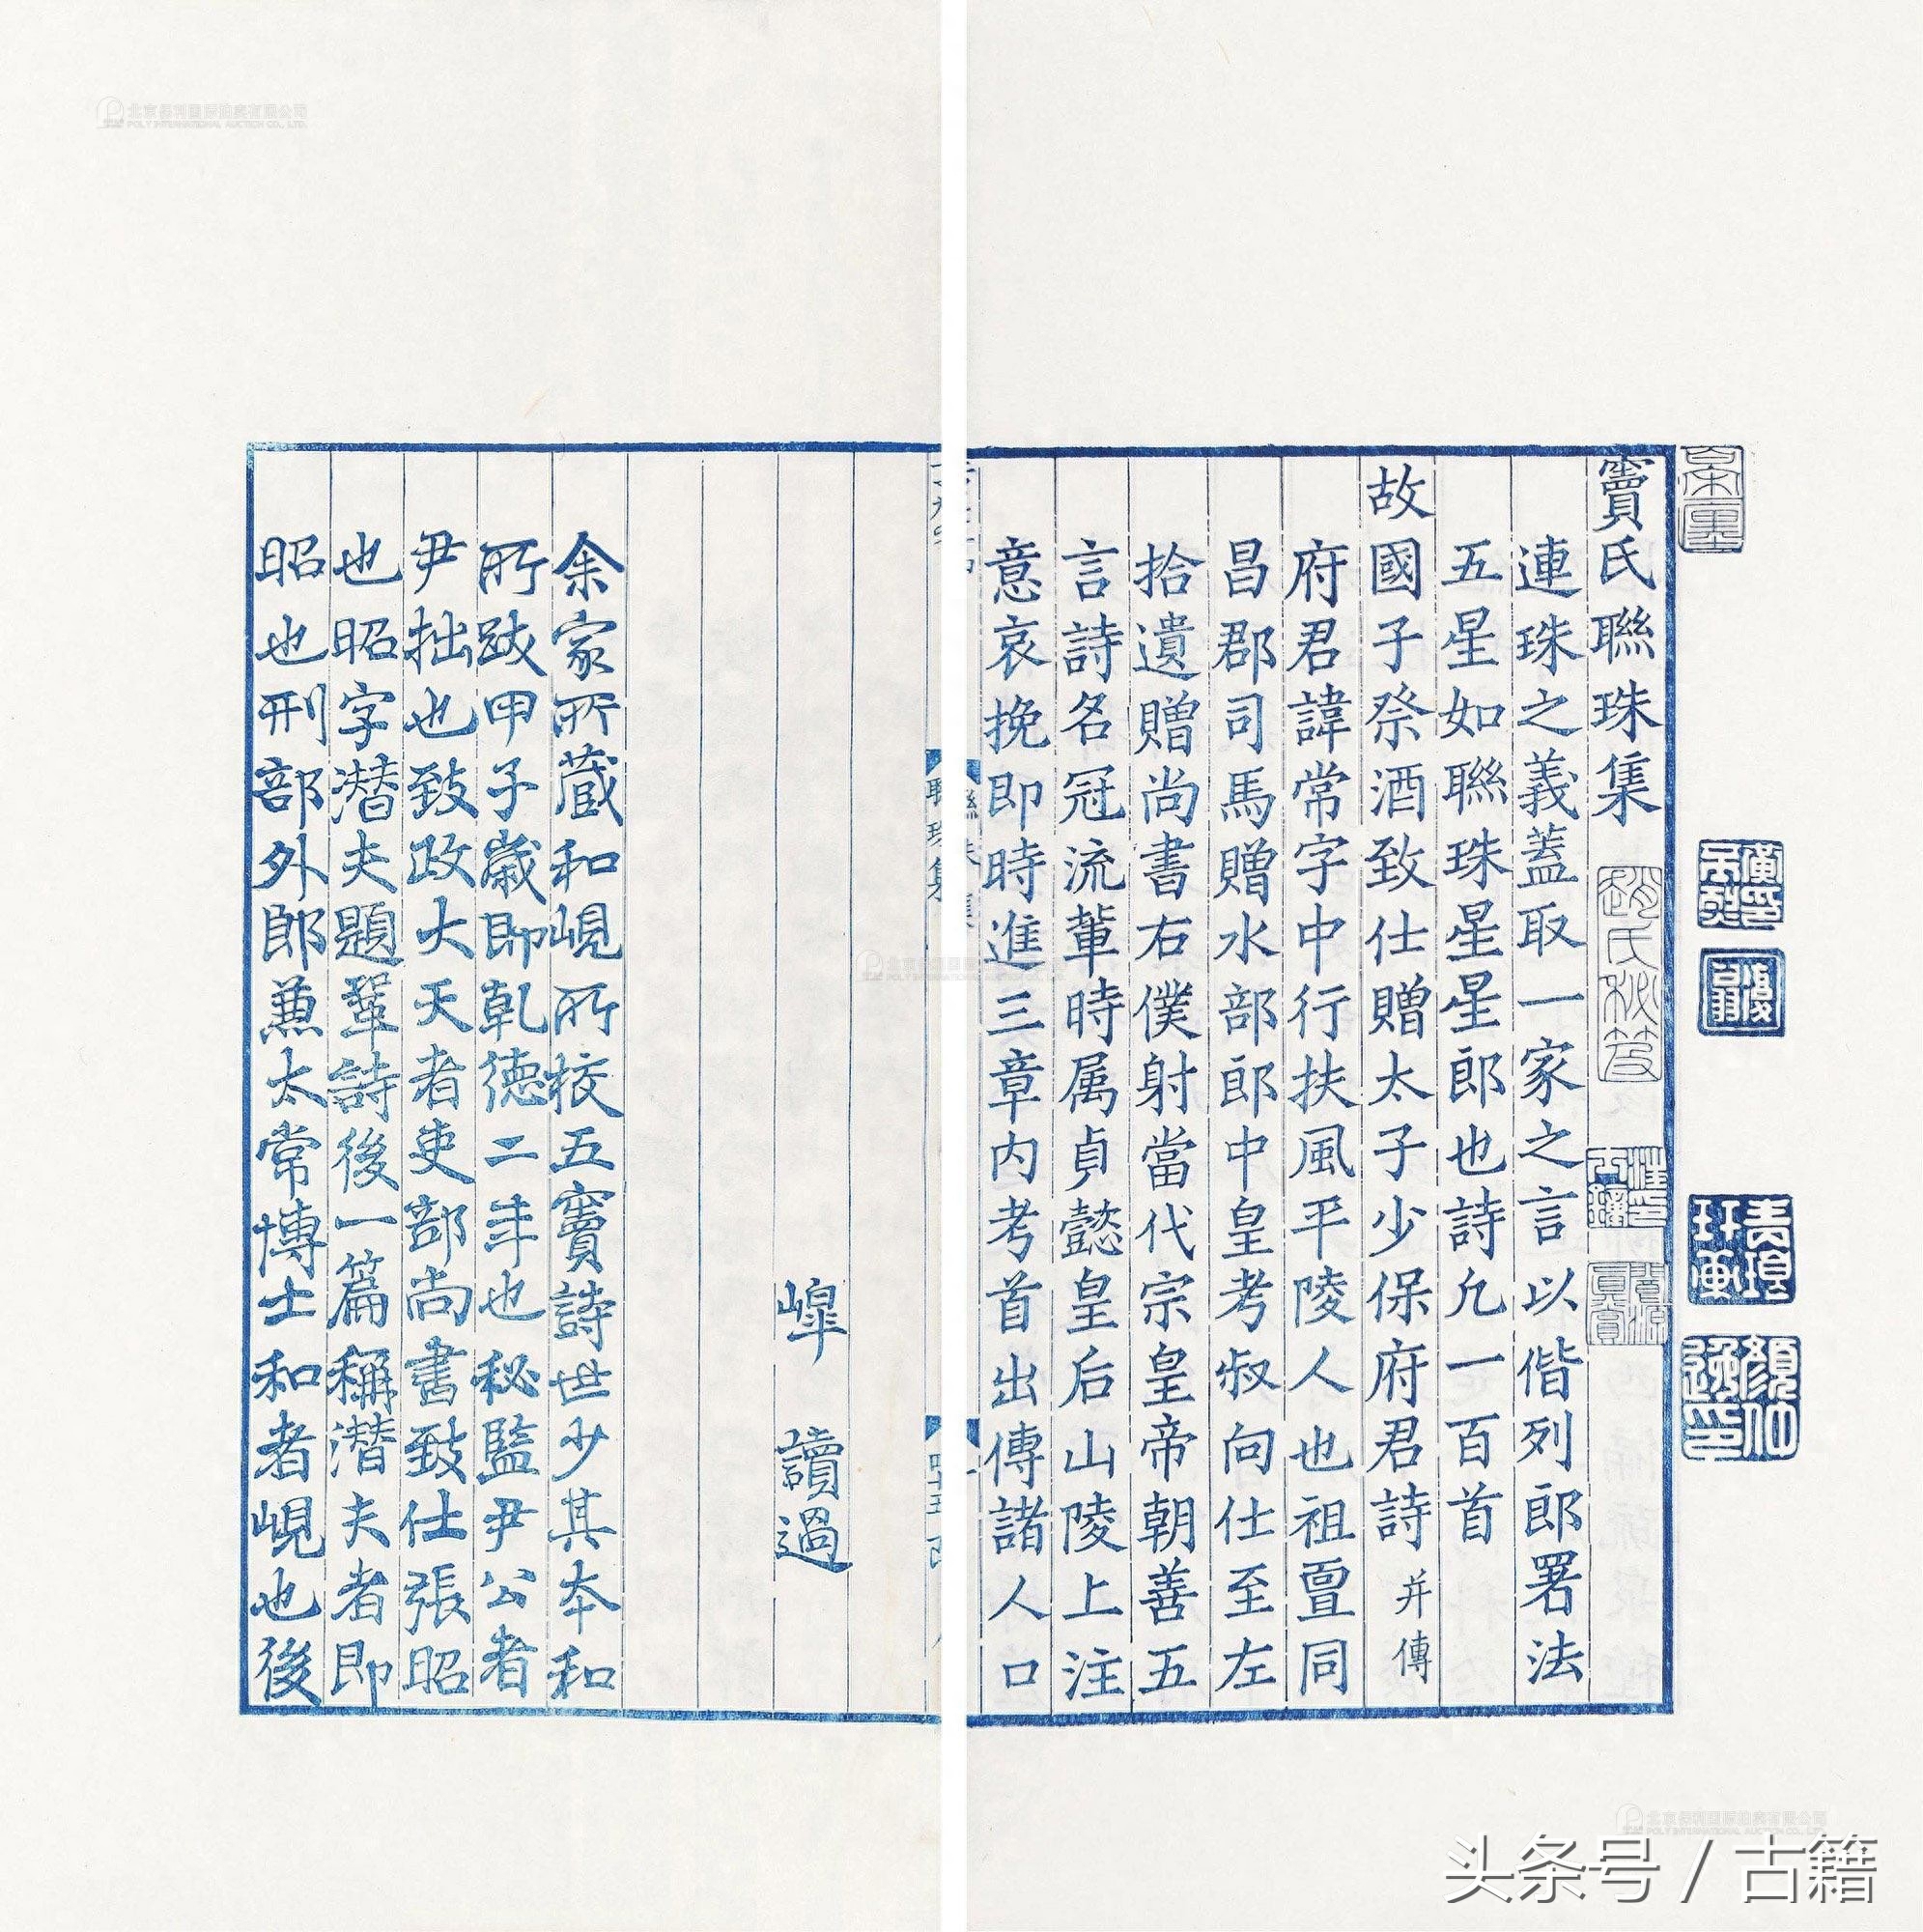 竇氏聯珠集
連珠之義蓋取一家之言以偕列郎署法
五星如聯珠星星郎也詩凢一百首
故國子祭酒致仕贈太子少保府君詩并傳
府君諱常字中行扶風平陵人也祖亶同
昌郡司馬贈水部郎中皇考叔向仕至左
拾遺贈尚書右僕射當代宗皇帝朝善五
言詩名冠流輩時属貞懿皇后山陵上注
意哀挽即時進三章内考首出傳諸人口
嶂 讀過
余家所蔵和峴所校五竇詩世少其本和
所跋甲子歳即乹德二年也秘監尹公者
尹拙也致政大天者吏部尚書致仕張昭
也昭字潜夫題鞏詩後一篇稱潜夫者即
昭也刑部外郎兼太常博士和者峴也後
聯珠集
趙氏秘笈
北京保利國際拍賣有限公司
POLY INTERNATIONAL AUCTION CO., LTD.
头条号 / 古籍